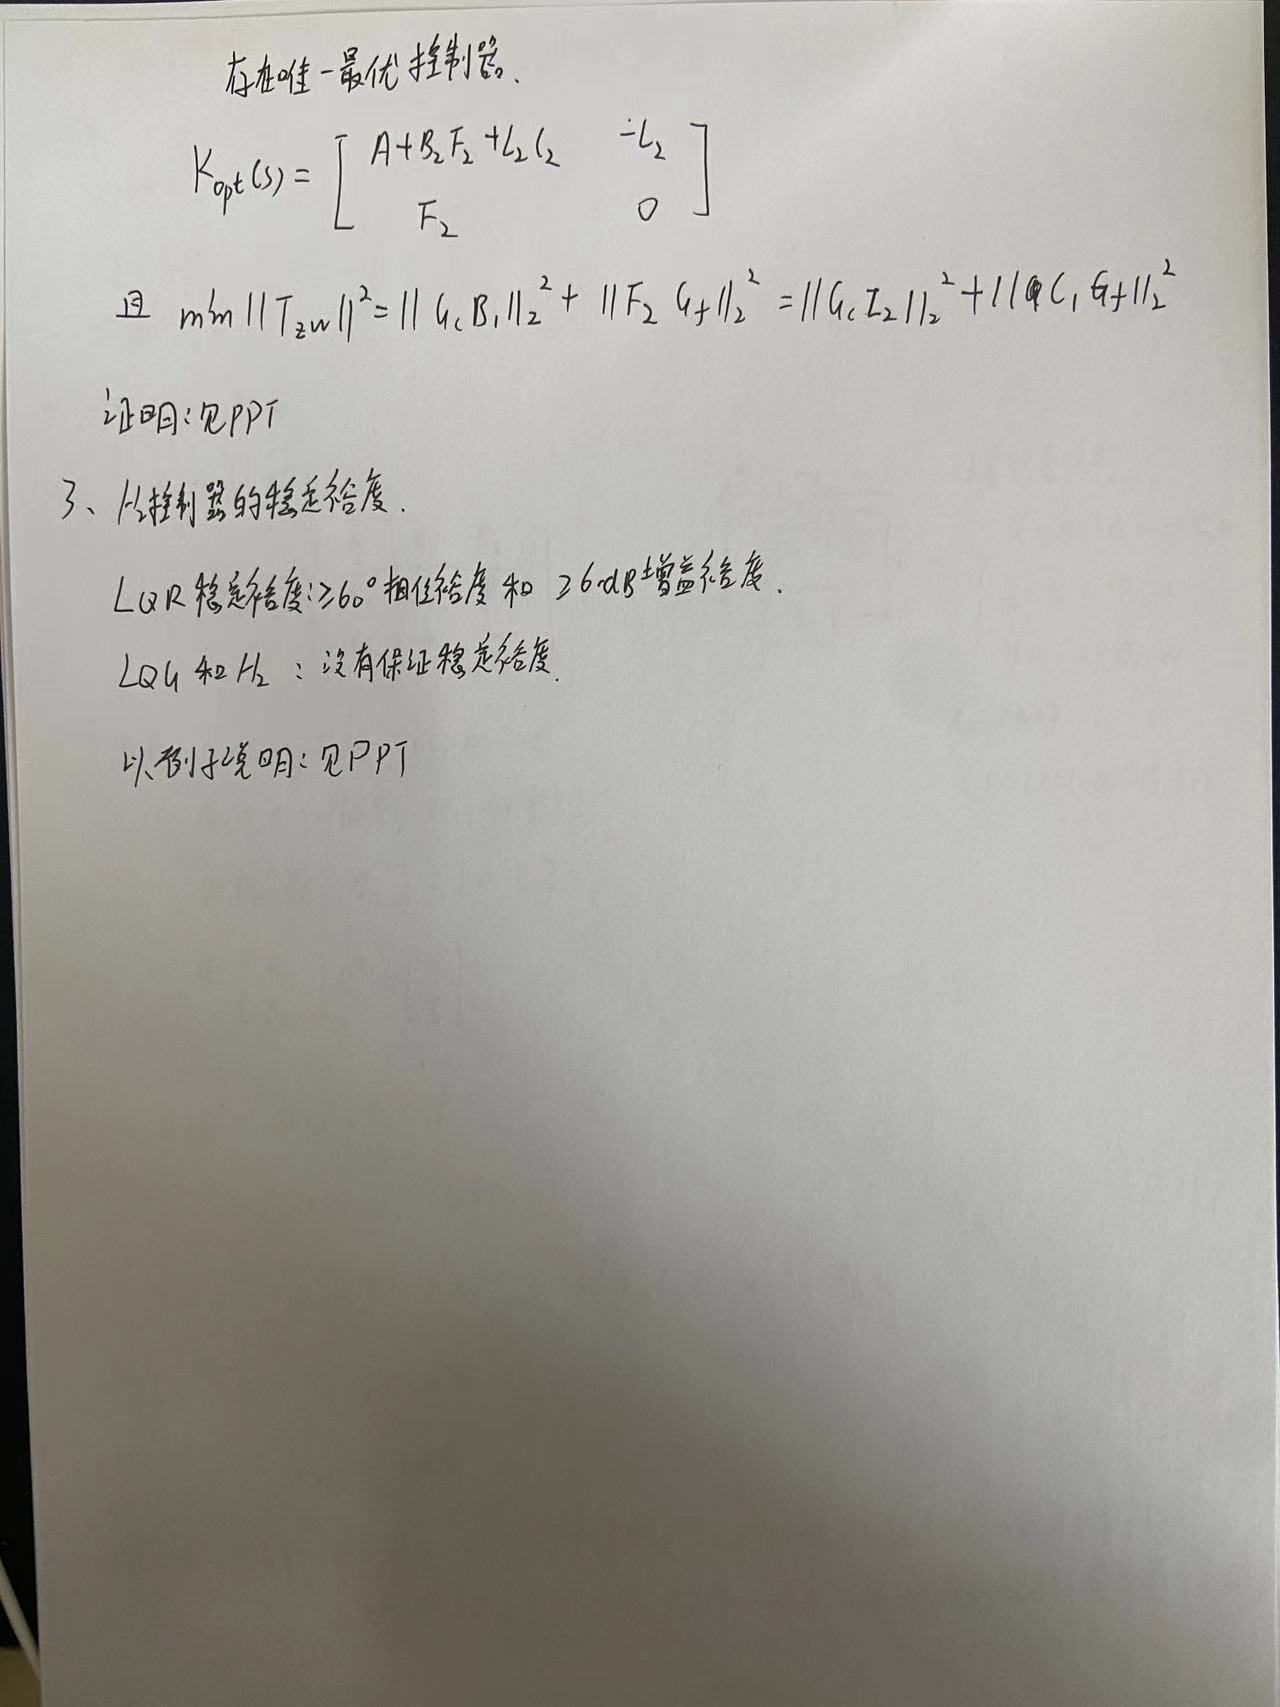 存在唯一最优控制器.
Kopt(s) = [ A+B₂F₂+L₂C₂ -L₂
F₂ 0 ]
且 min ||Tzw||² = ||GcB₁||₂² + ||F₂ Gf||₂² = ||GcL₂||₂² + ||C₁ Gf||₂²
证明:见PPT
3、H₂控制器的稳定裕度.
LQR稳定裕度:≥60°相位裕度和 ≥6dB增益裕度.
LQG和H₂:没有保证稳定裕度.
以例子说明:见PPT